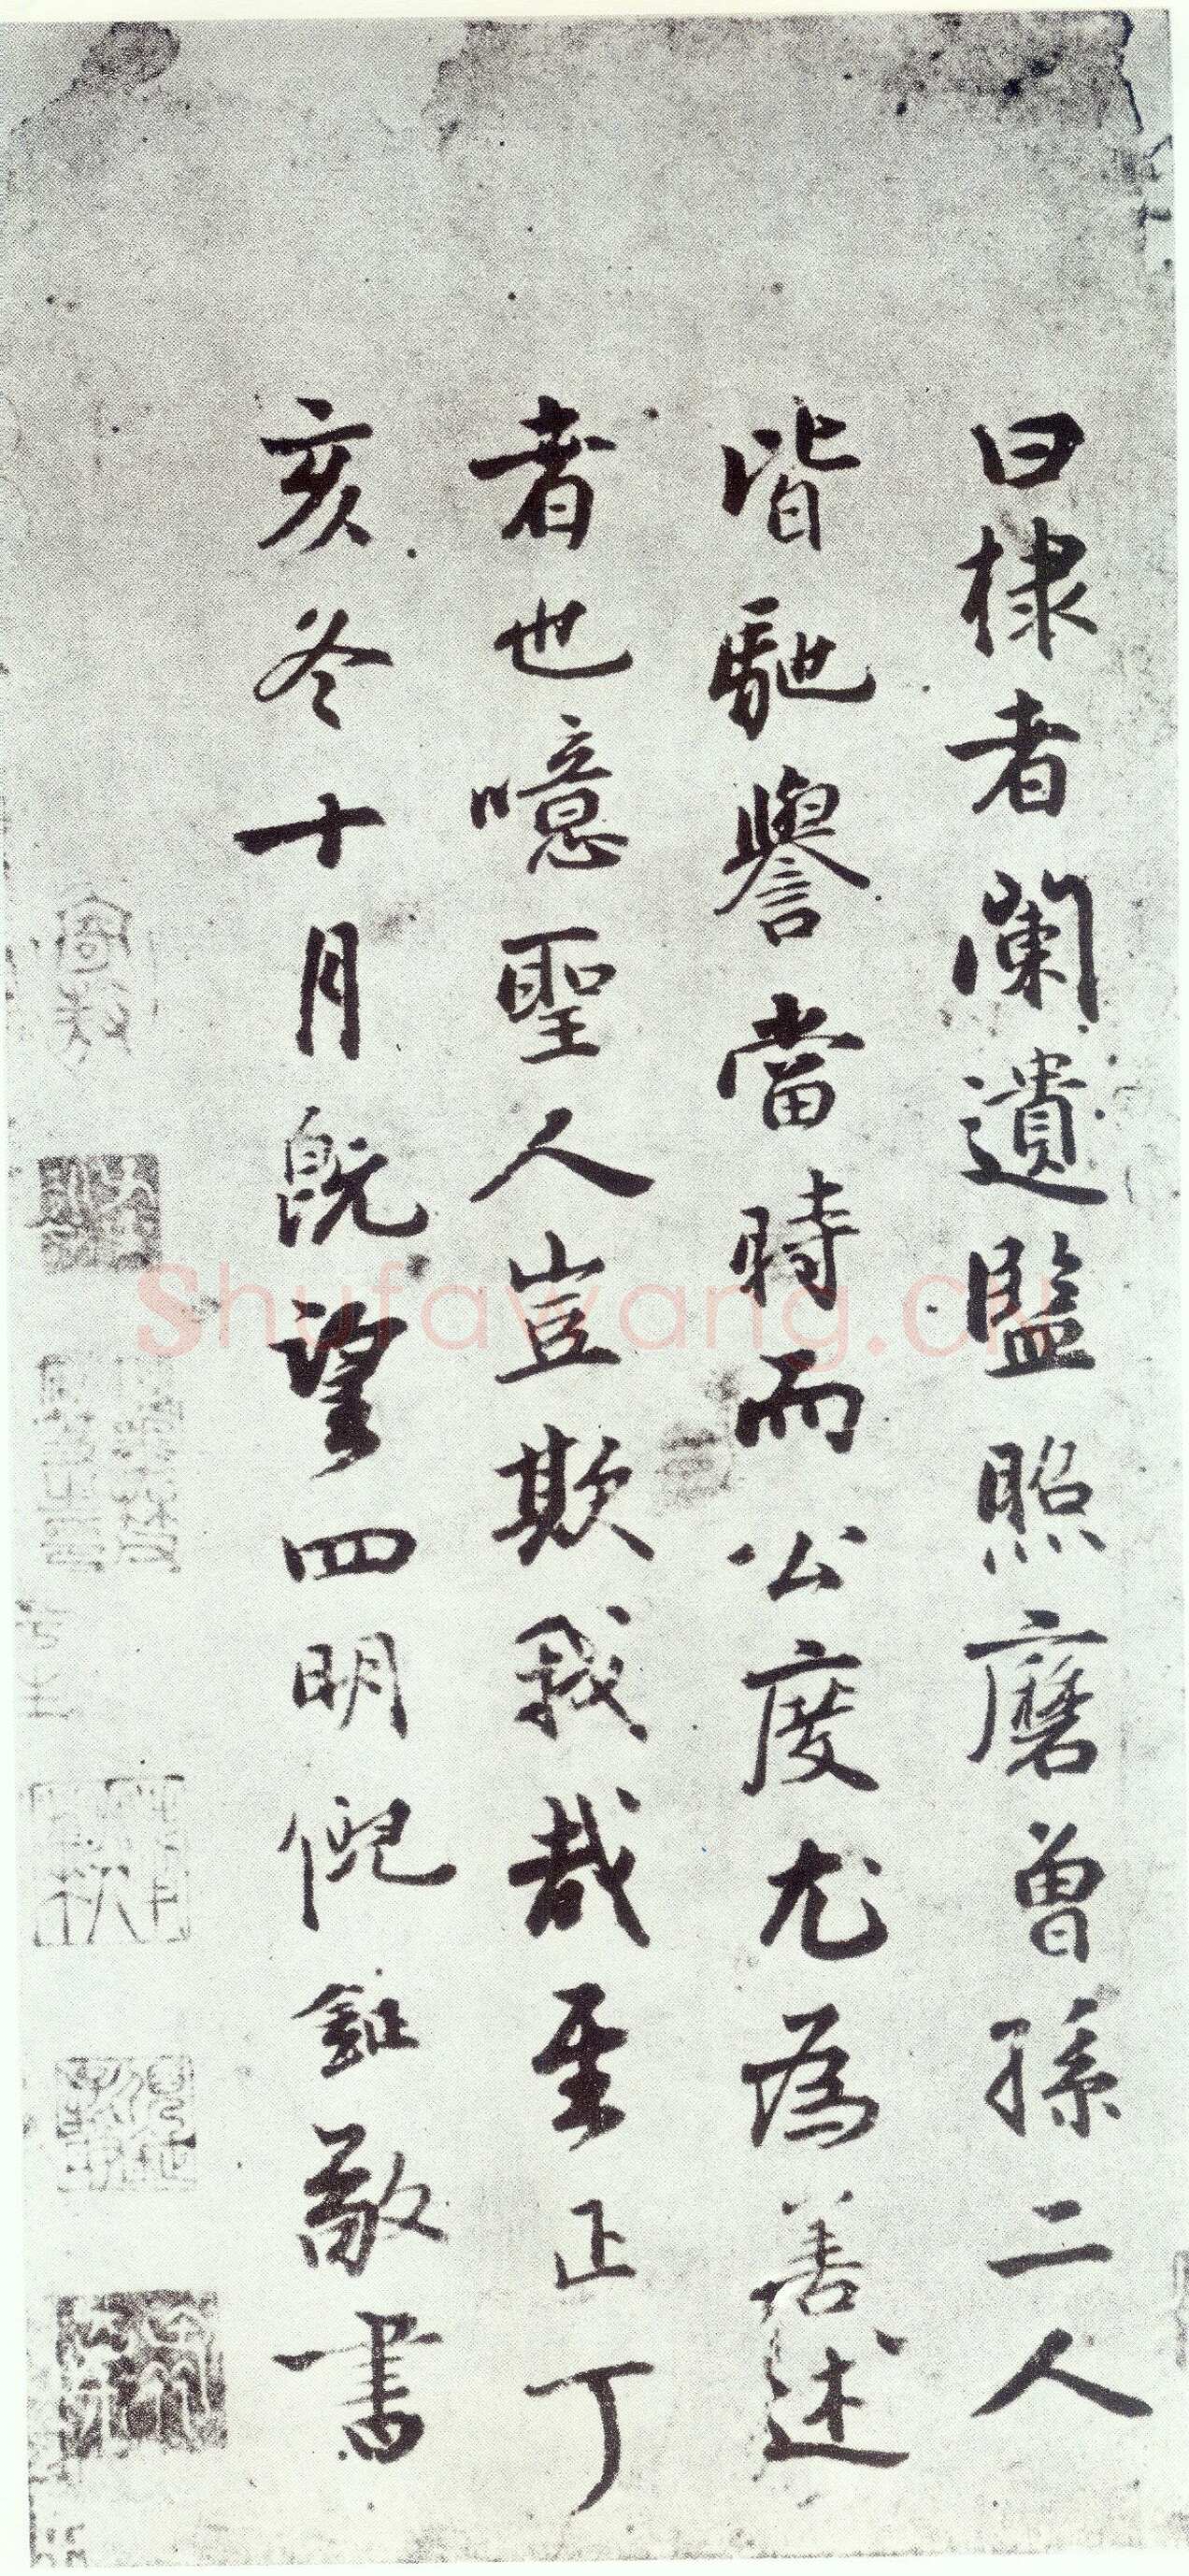 曰棣者蘭遺監照磨曾孫二人
皆馳譽當時而公度尤為善述
者也噫聖人豈欺我哉至正丁
亥冬十月既望四明倪鉦敬書
shufawang.cn